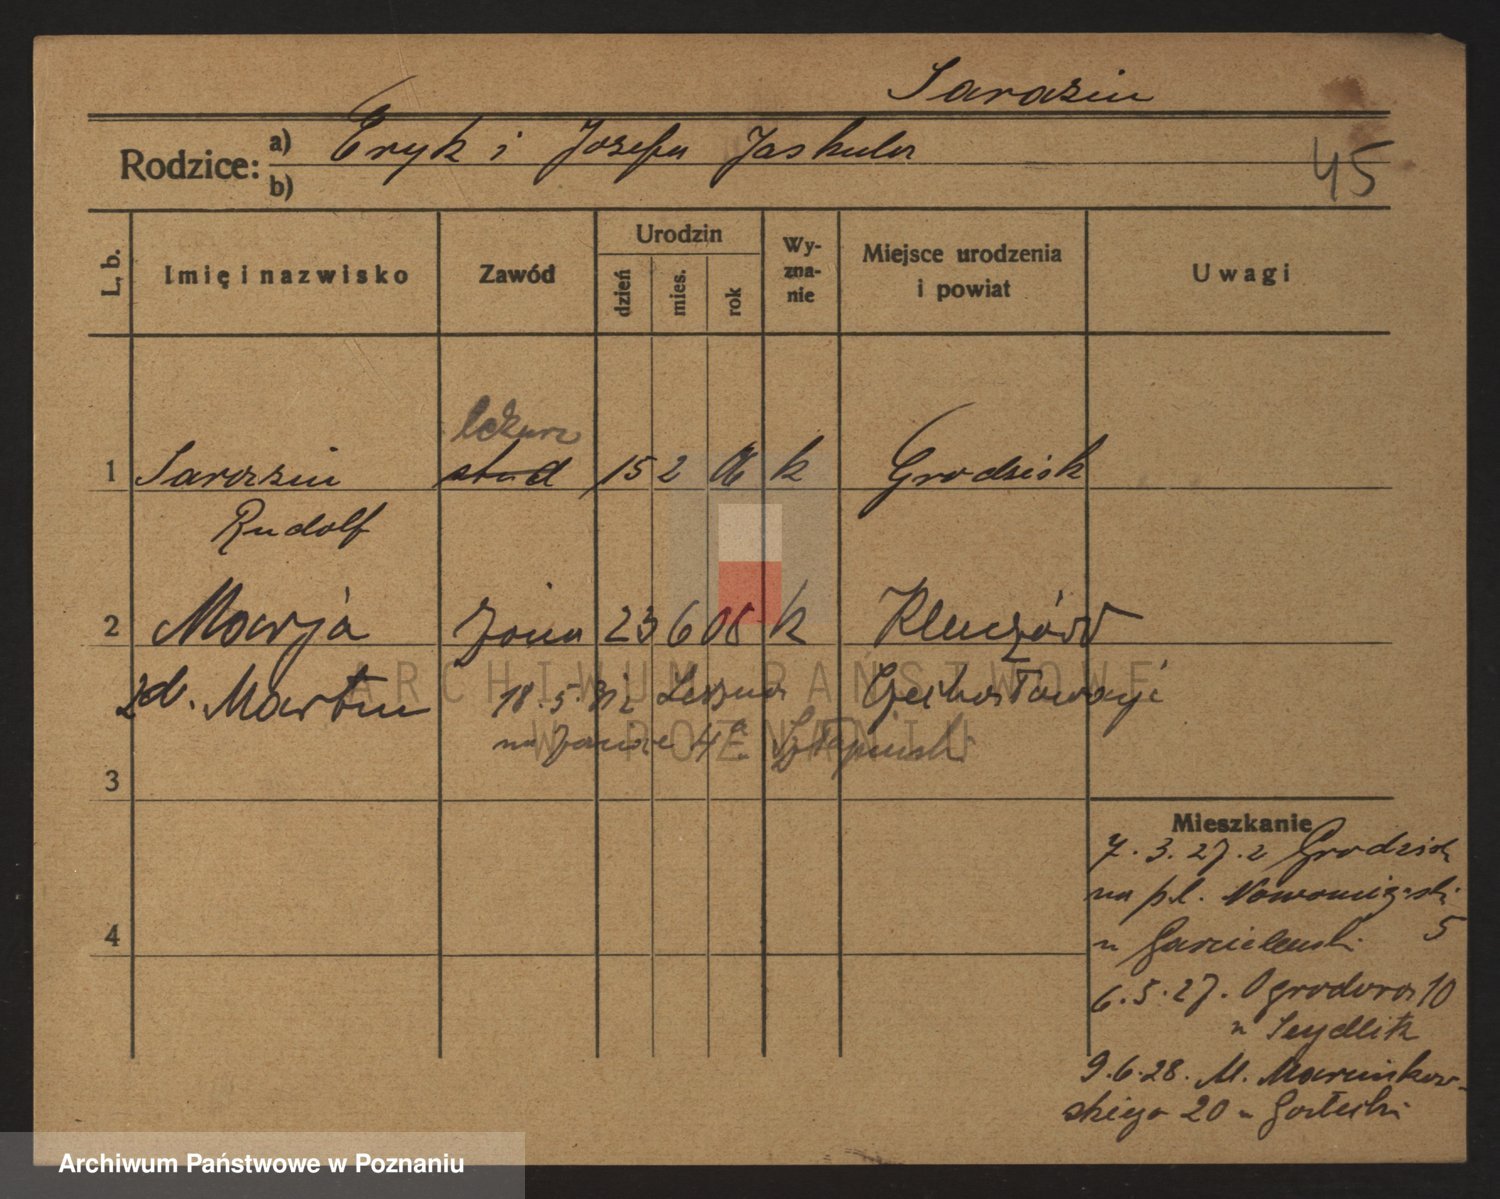 Sarazin
Rodzice: a) Eryk i Józefa Jaskula
b)
45
L. b.
Imię i nazwisko
Zawód
Urodzin
dzień
mies.
rok
Wy-
zna-
nie
Miejsce urodzenia
i powiat
Uwagi
lekarz
1 Sarazin stud 15 2 06 k Grodzisk
Rudolf
2 Marja żona 23 6 08 k
zd. Martin 18.5.31 z Leszna
na 4a
3
4
Mieszkanie
7.3.27. z Grodzisk
na pl. Nowomiejski
5
6.5.27. Ogrodowa 10
u Seydlitz
9.6.28. M. Marcinkow-
skiego 20 u
ARCHIWUM PAŃSTWOWE
W POZNANIU
Archiwum Państwowe w Poznaniu